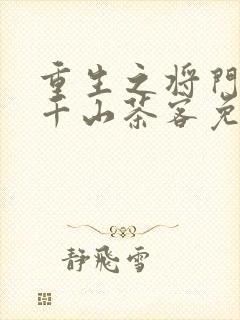 重生之将门
千山茶客免
静飛雪